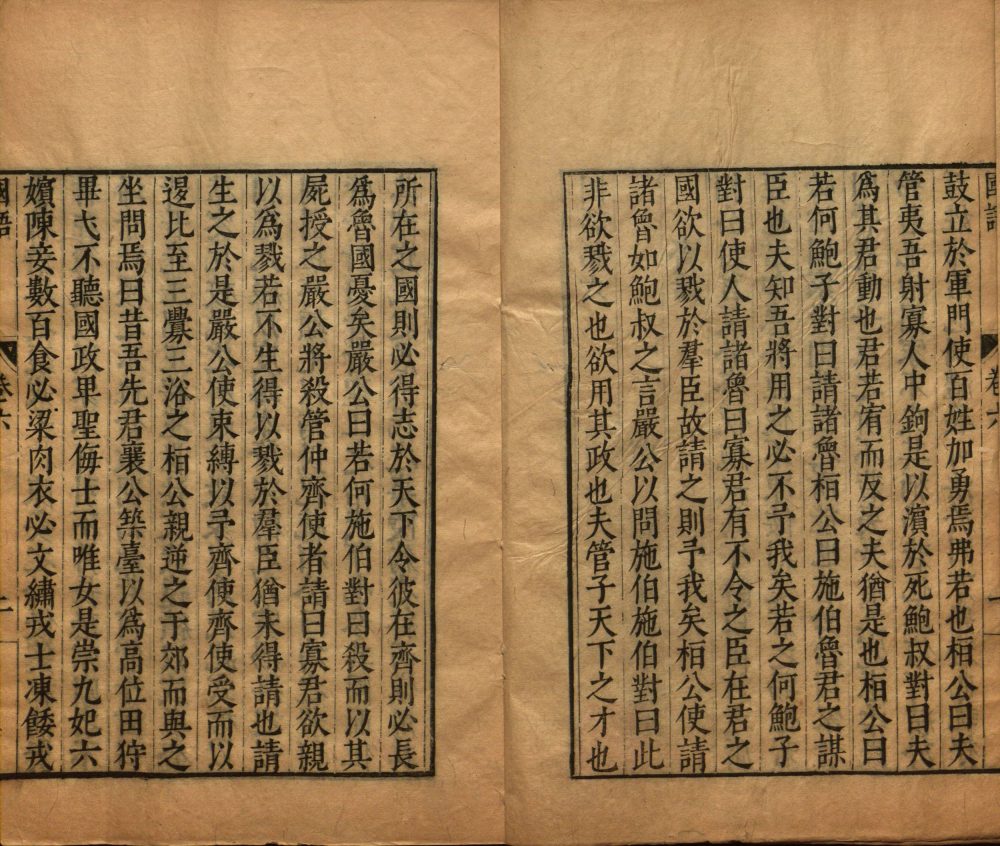 國語
卷六
一
鼓立於軍門使百姓加勇焉弗若也桓公曰夫
管夷吾射寡人中鉤是以濱於死鮑叔對曰夫
爲其君動也君若宥而反之夫猶是也桓公曰
若何鮑子對曰請諸魯桓公曰施伯魯君之謀
臣也夫知吾將用之必不予我矣若之何鮑子
對曰使人請諸魯曰寡君有不令之臣在君之
國欲以戮於羣臣故請之則予我矣桓公使請
諸魯如鮑叔之言嚴公以問施伯施伯對曰此
非欲戮之也欲用其政也夫管子天下之才也
所在之國則必得志於天下令彼在齊則必長
爲魯國憂矣嚴公曰若何施伯對曰殺而以其
屍授之嚴公將殺管仲齊使者請曰寡君欲親
以爲戮若不生得以戮於羣臣猶未得請也請
生之於是嚴公使束縛以予齊使齊使受而以
退比至三釁三浴之桓公親逆之于郊而與之
坐問焉曰昔吾先君襄公築臺以爲高位田狩
畢弋不聽國政卑聖侮士而唯女是崇九妃六
嬪陳妾數百食必粱肉衣必文繡戎士凍餒戎
國語
卷六
二